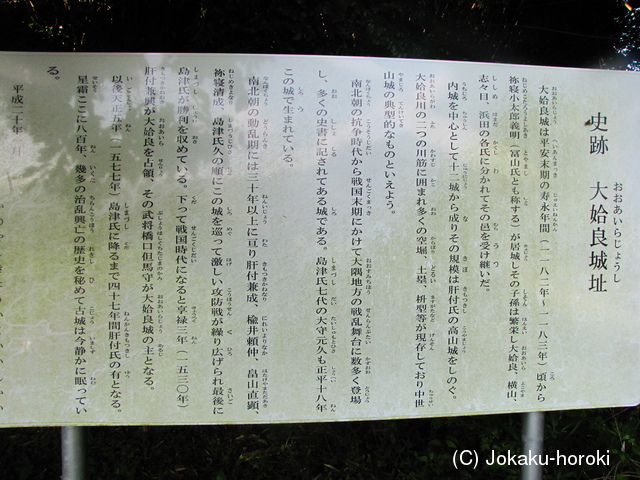 史跡 大姶良城址
おおあいらじょうし
大姶良城は平安末期の寿永年間(一一八二年~一一八三年)頃から
祢寝小太郎義明(富山氏とも称する)が居城しその子孫は繁栄し大姶良、横山、
志々目、浜田の各氏に分かれてその邑を受け継いだ。
内城を中心として十二城から成りその規模は肝付氏の高山城をしのぐ、
大姶良川の二つの川筋に囲まれ多くの空堀、土塁、枡型等が現存しており中世
山城の典型的なものといえよう。
南北朝の抗争時代から戦国末期にかけて大隅地方の戦乱舞台に数多く登場
し、多くの史書に記されてある城である。島津氏七代の大守元久も正平十八年
この城で生まれている。
南北朝の動乱期には三十年以上に亘り肝付兼成、楡井頼仲、畠山直顕、
祢寝清成、島津氏久の順にこの城を巡って激しい攻防戦が繰り広げられ最後に
島津氏が勝利を収めている。下って戦国時代になると享禄三年(一五三〇年)
肝付兼興が大姶良を占領、その武将橋口但馬守が大姶良城の主となる。
以後天正五年(一五七七年)島津氏に降るまで四十七年間肝付氏の有となる。
星霜ここに八百年、幾多の治乱興亡の歴史を秘めて古城は今静かに眠ってい
る。
平成二十年 月
(C) Jokaku-horoki